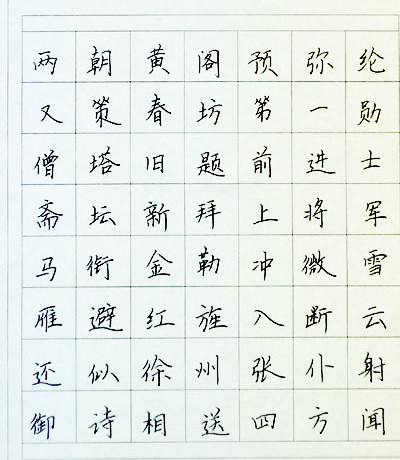 两朝黄阁预弥纶
又策春坊第一勋
僧塔旧题前进士
斋坛新拜上将军
马衔金勒冲微雪
雁避红旌入断云
还似徐州张仆射
御诗相送四方闻